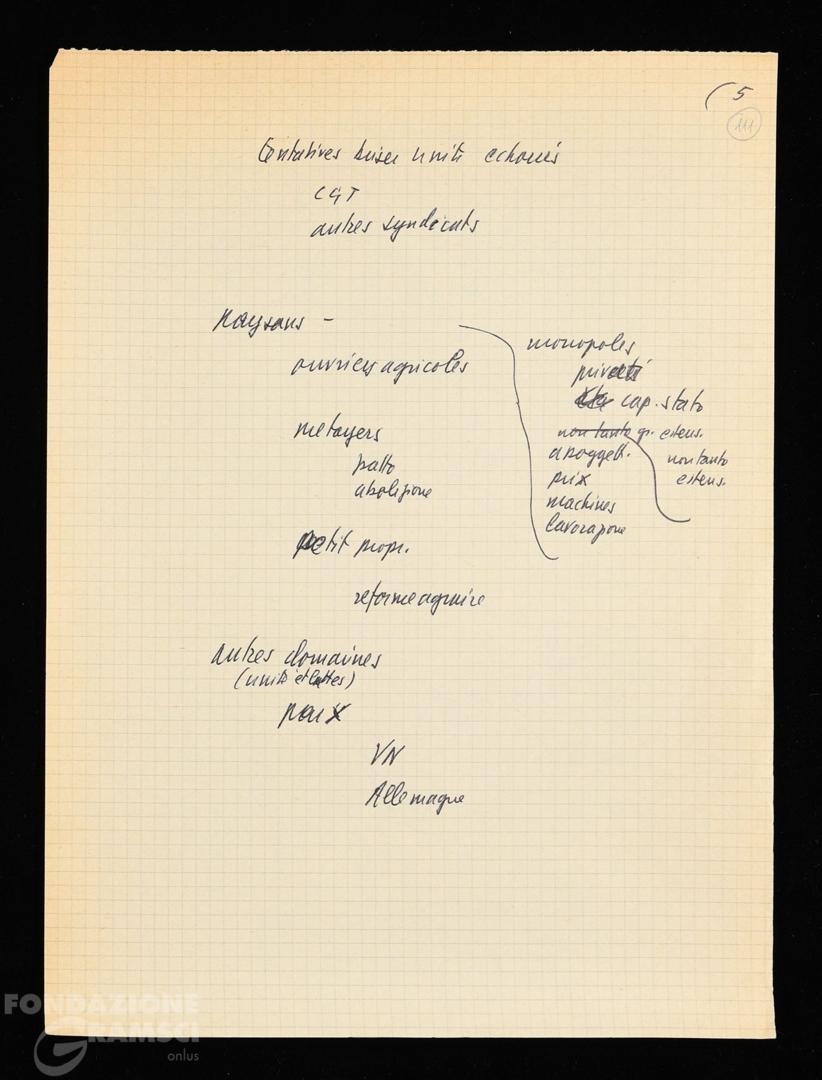 ( 5
111
Tentatives briser unité echoués
CGT
autres syndicats
Paysans -
ouvriers agricoles
metayers
patto
abolizione
petit propr.
reforme agraire
monopoles
privati
cap. stato
non tanto gr. estens.
assoggett.
prix
machines
lavorazione
non tanto
estens.
autres domaines
(unité et luttes)
paix
VN
Allemagne
FONDAZIONE
GRAMSCI
onlus